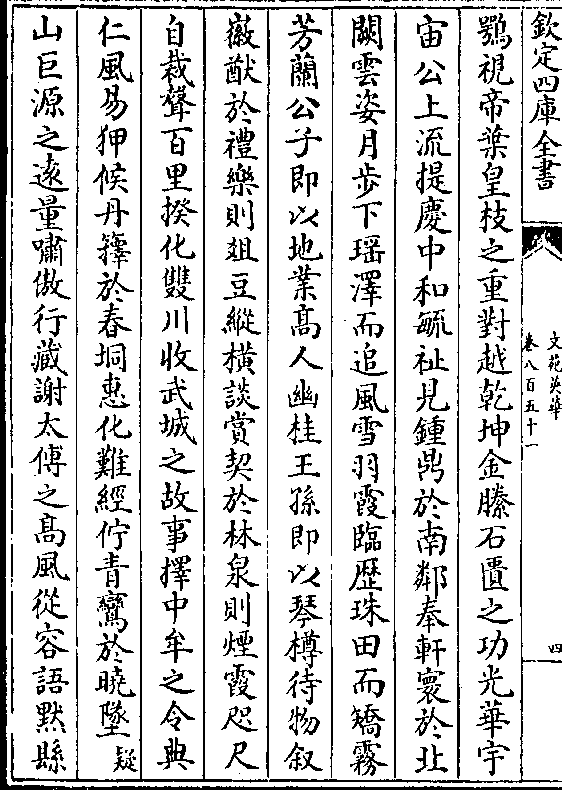 欽定四庫全書
文苑英華
卷八百五十一
四
鶚視帝葉皇枝之重對越乾坤金縢石匱之功光華宇
宙公上流提慶中和毓祉見鍾鼎於南鄰奉軒寰於北
闕雲姿月步下瑶澤而追風雪羽霞臨歴珠田而矯霧
芳蘭公子即以地業髙人幽桂王孫即以琴樽待物叙
徽猷於禮樂則俎豆縱横談賞契於林泉則煙霞咫尺
自裁聲百里揆化雙川收武城之故事擇中牟之令典
仁風易狎候丹籜於春垌惠化難經佇青鸞於曉墜疑
山巨源之遠量嘯傲行藏謝太傅之髙風從容語黙縣